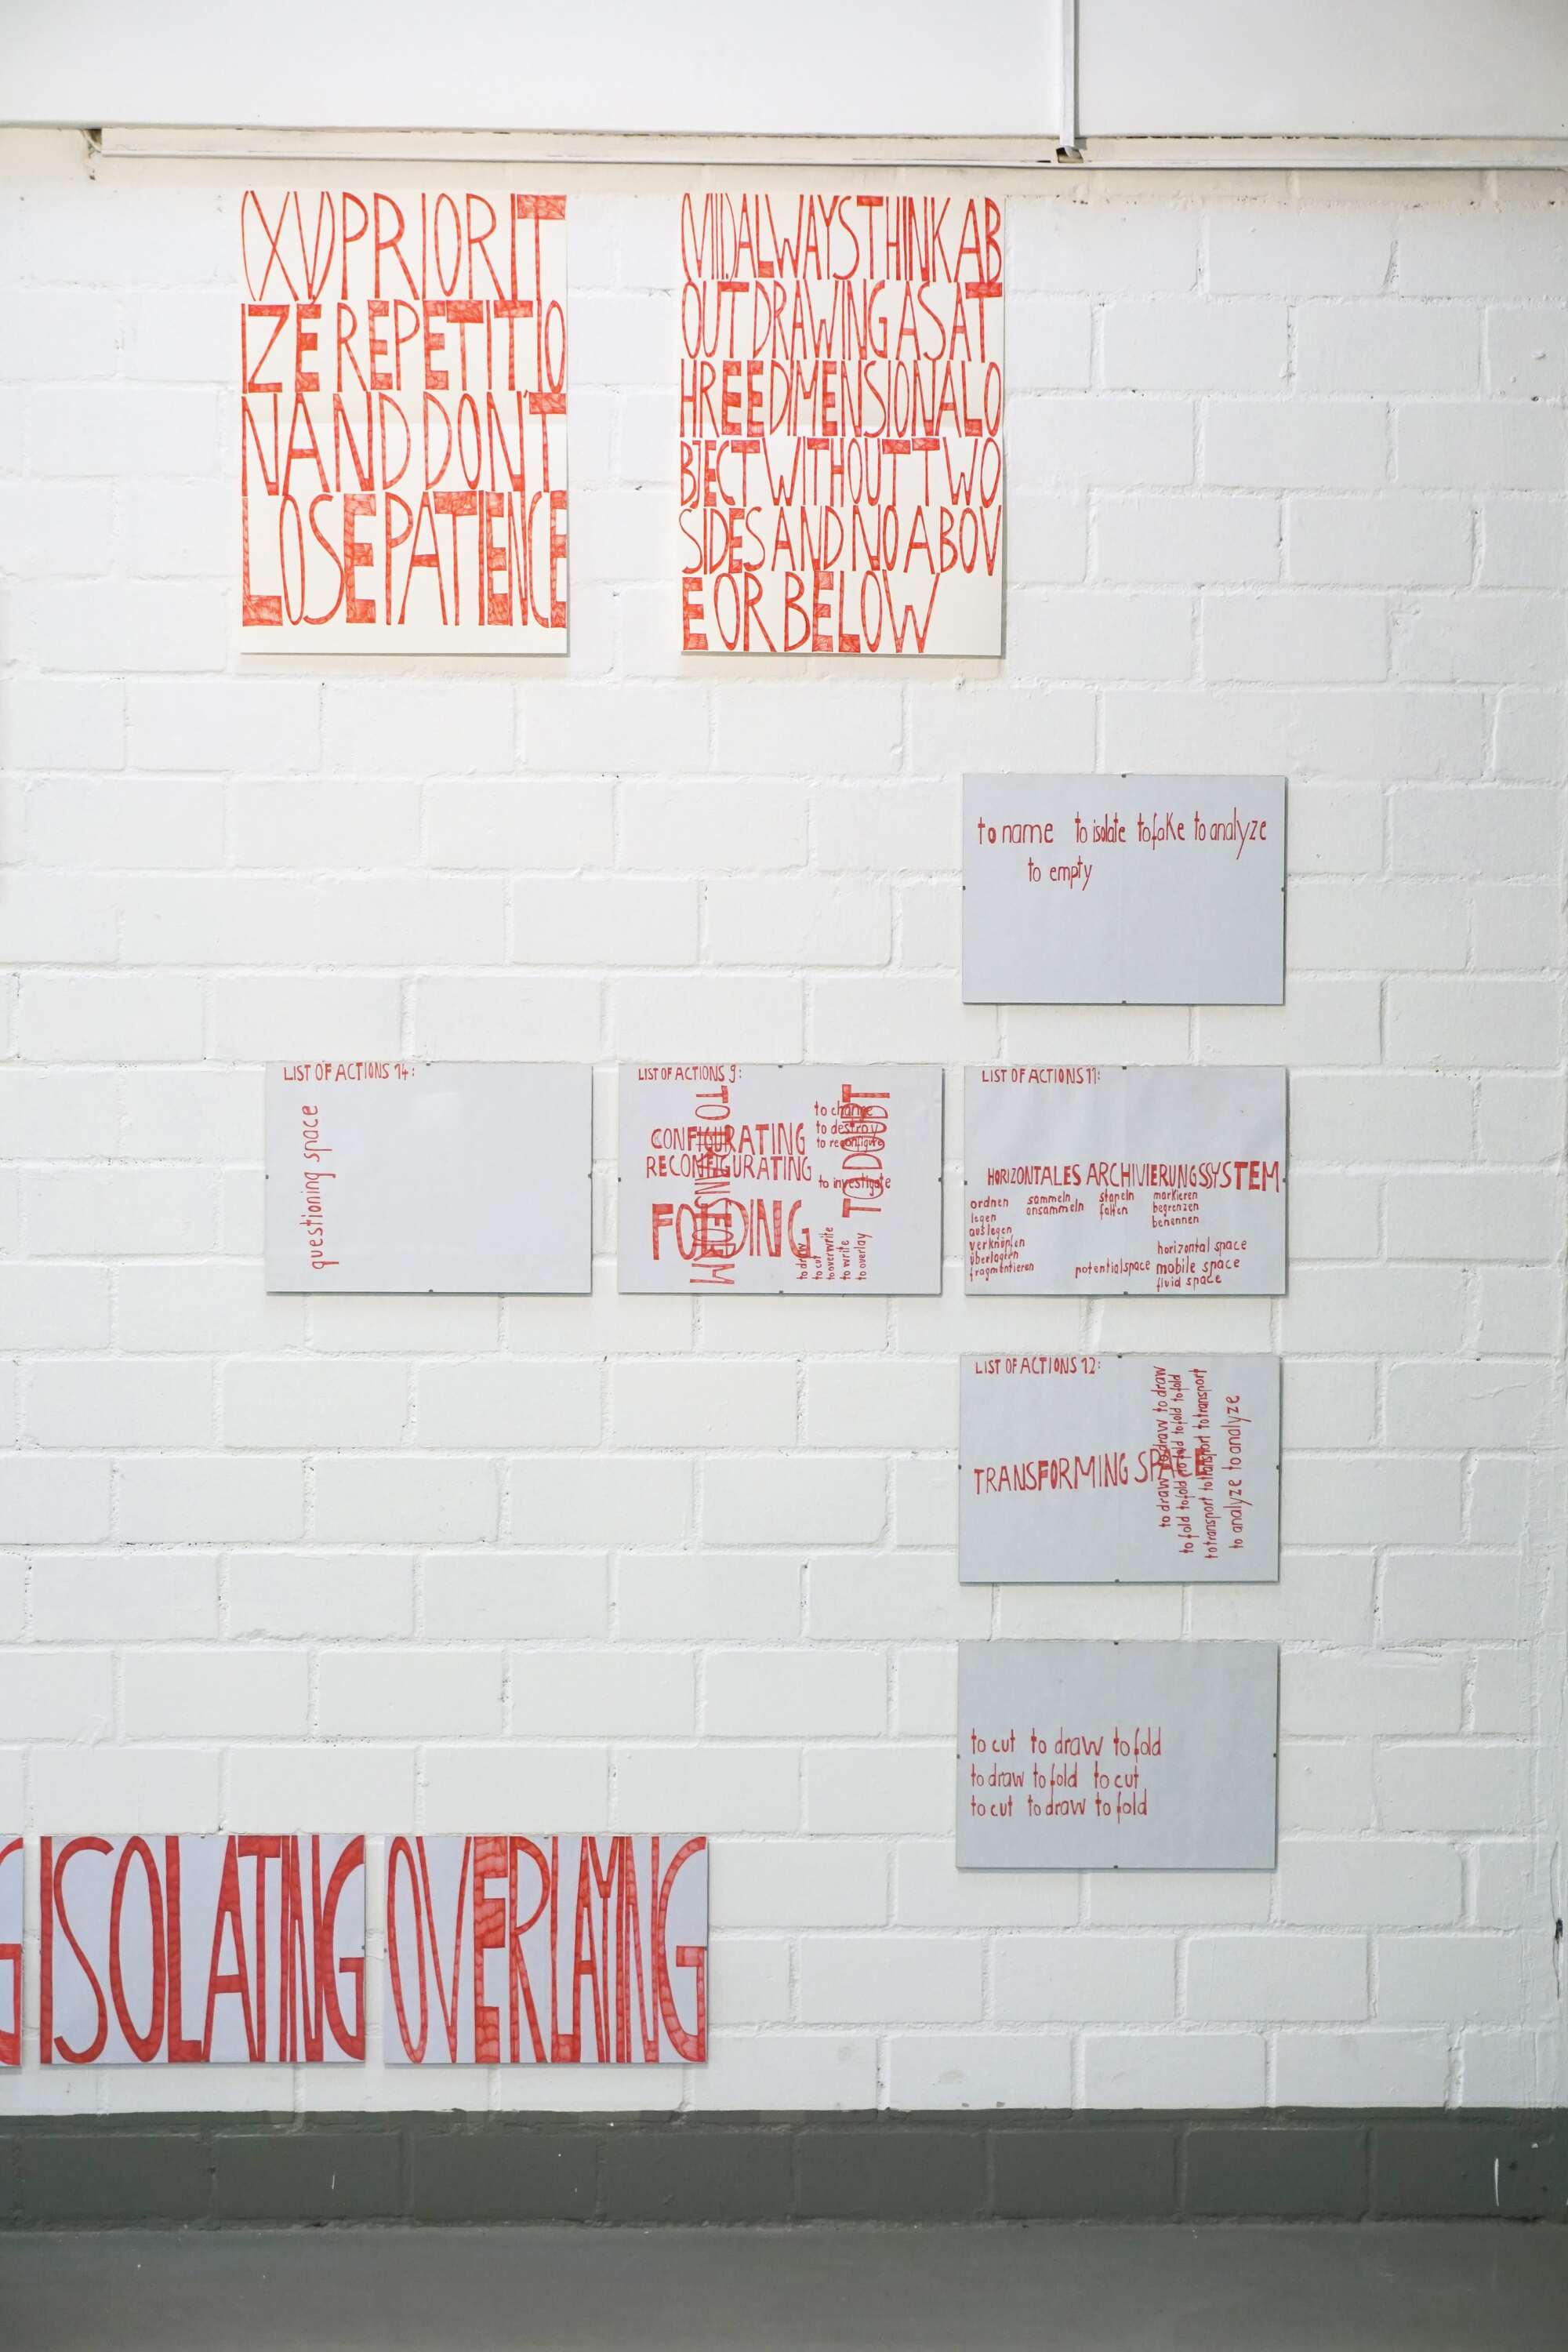 (XV)PRIORIT
IZE REPETITIO
NAND DON'T
LOSEPATIENCE
(VIII)ALWAYSTHINK AB
OUT DRAWING ASAT
HREEDIMENSIONALO
BJECT WITHOUT TWO
SIDES AND NO ABOV
E OR BELOW
to name to isolate to fake to analyze
to empty
LIST OF ACTIONS 14:
questioning space
LIST OF ACTIONS 9:
TO TRANSFORM
CONFIGURATING
RECONFIGURATING
FOLDING
to change
to destroy
to reconfigure
to investigate
TO DOUBT
to draw
to cut
to overwrite
to write
to overlay
LIST OF ACTIONS 11:
HORIZONTALES ARCHIVIERUNGSSYSTEM
ordnen sammeln stapeln markieren
legen ansammeln falten begrenzen
auslegen benennen
verknüpfen horizontal space
überlagern potentialspace mobile space
fragmentieren fluid space
LIST OF ACTIONS 12:
TRANSFORMING SPACE
to draw to draw to draw
to fold to fold to fold to fold to fold
to transport to transport to transport
to analyze to analyze
to cut to draw to fold
to draw to fold to cut
to cut to draw to fold
G ISOLATING OVERLAYING